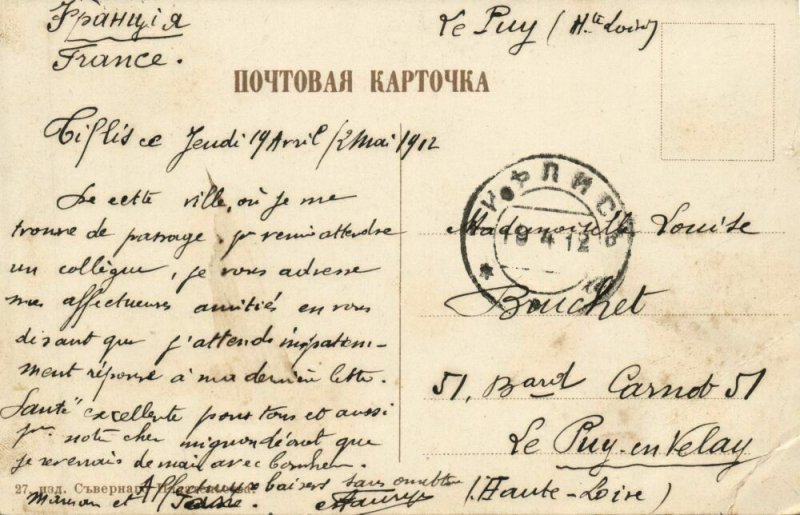 Франція
France.
Le Puy (Hte Loire)
ПОЧТОВАЯ КАРТОЧКА
Tiflis ce Jeudi 19 Avril / 2 Mai 1912
De cette ville, où je me
trouve de passage, pr venir attendre
un collègue, je vous adresse
mes affectueuses amitiés en vous
disant que j'attends impatiem-
ment réponse à ma dernière lettre.
Santé excellente pour tous et aussi
pr notre cher mignon d'écout que
je reverrais demain avec bonheur.
Affectueux baisers sans omettre
Maman et
27. изд. Съвернаго
ТИФЛИСЪ
19 4 12
Mademoiselle Louise
Bouchet
51, Bard Carnot 51
Le Puy-en Velay
(Haute-Loire)